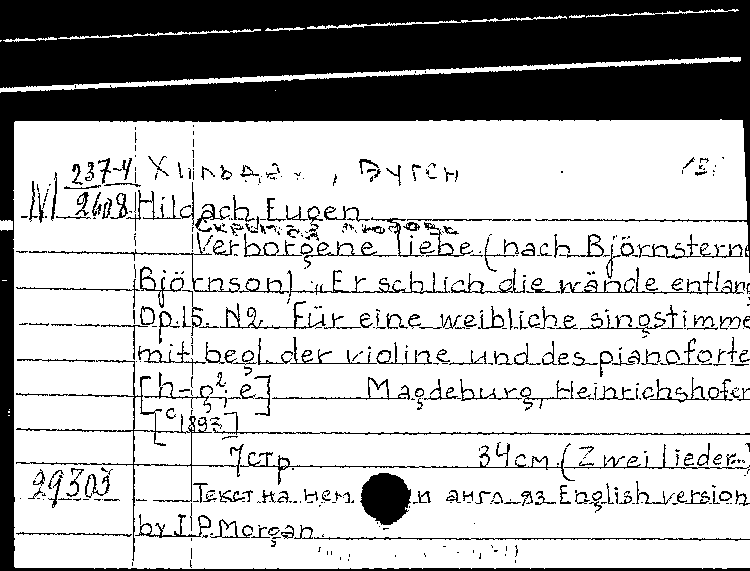 237-4 Хильдах, Эуген 15
М 2608 Hildach, Eugen
Скрытая любовь
Verborgene liebe (nach Björnsterne
Björnson) „Er schlich die wände entlang
Op.15. N2. Für eine weibliche singstimme
mit begl. der violine und des pianoforte
[h-g²; e] Magdeburg, Heinrichshofen
[c1893]
7стр. 34см. (Zwei lieder...)
29303 Текст на нем и англ. яз English version
by J.P.Morgan.